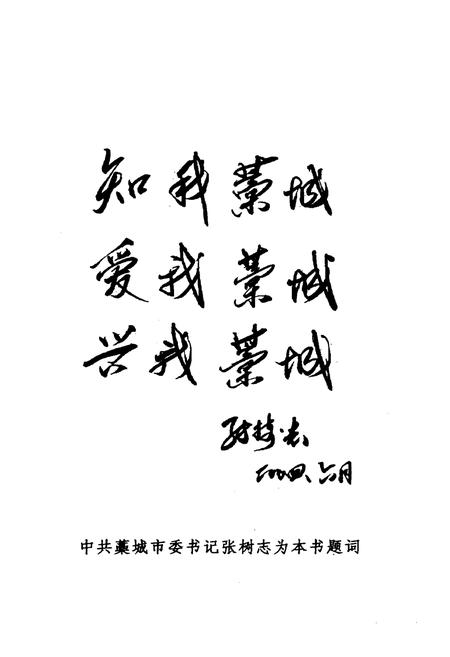 知我藁城
爱我藁城
兴我藁城
张树志
二〇〇四、六月
中共藁城市委书记张树志为本书题词